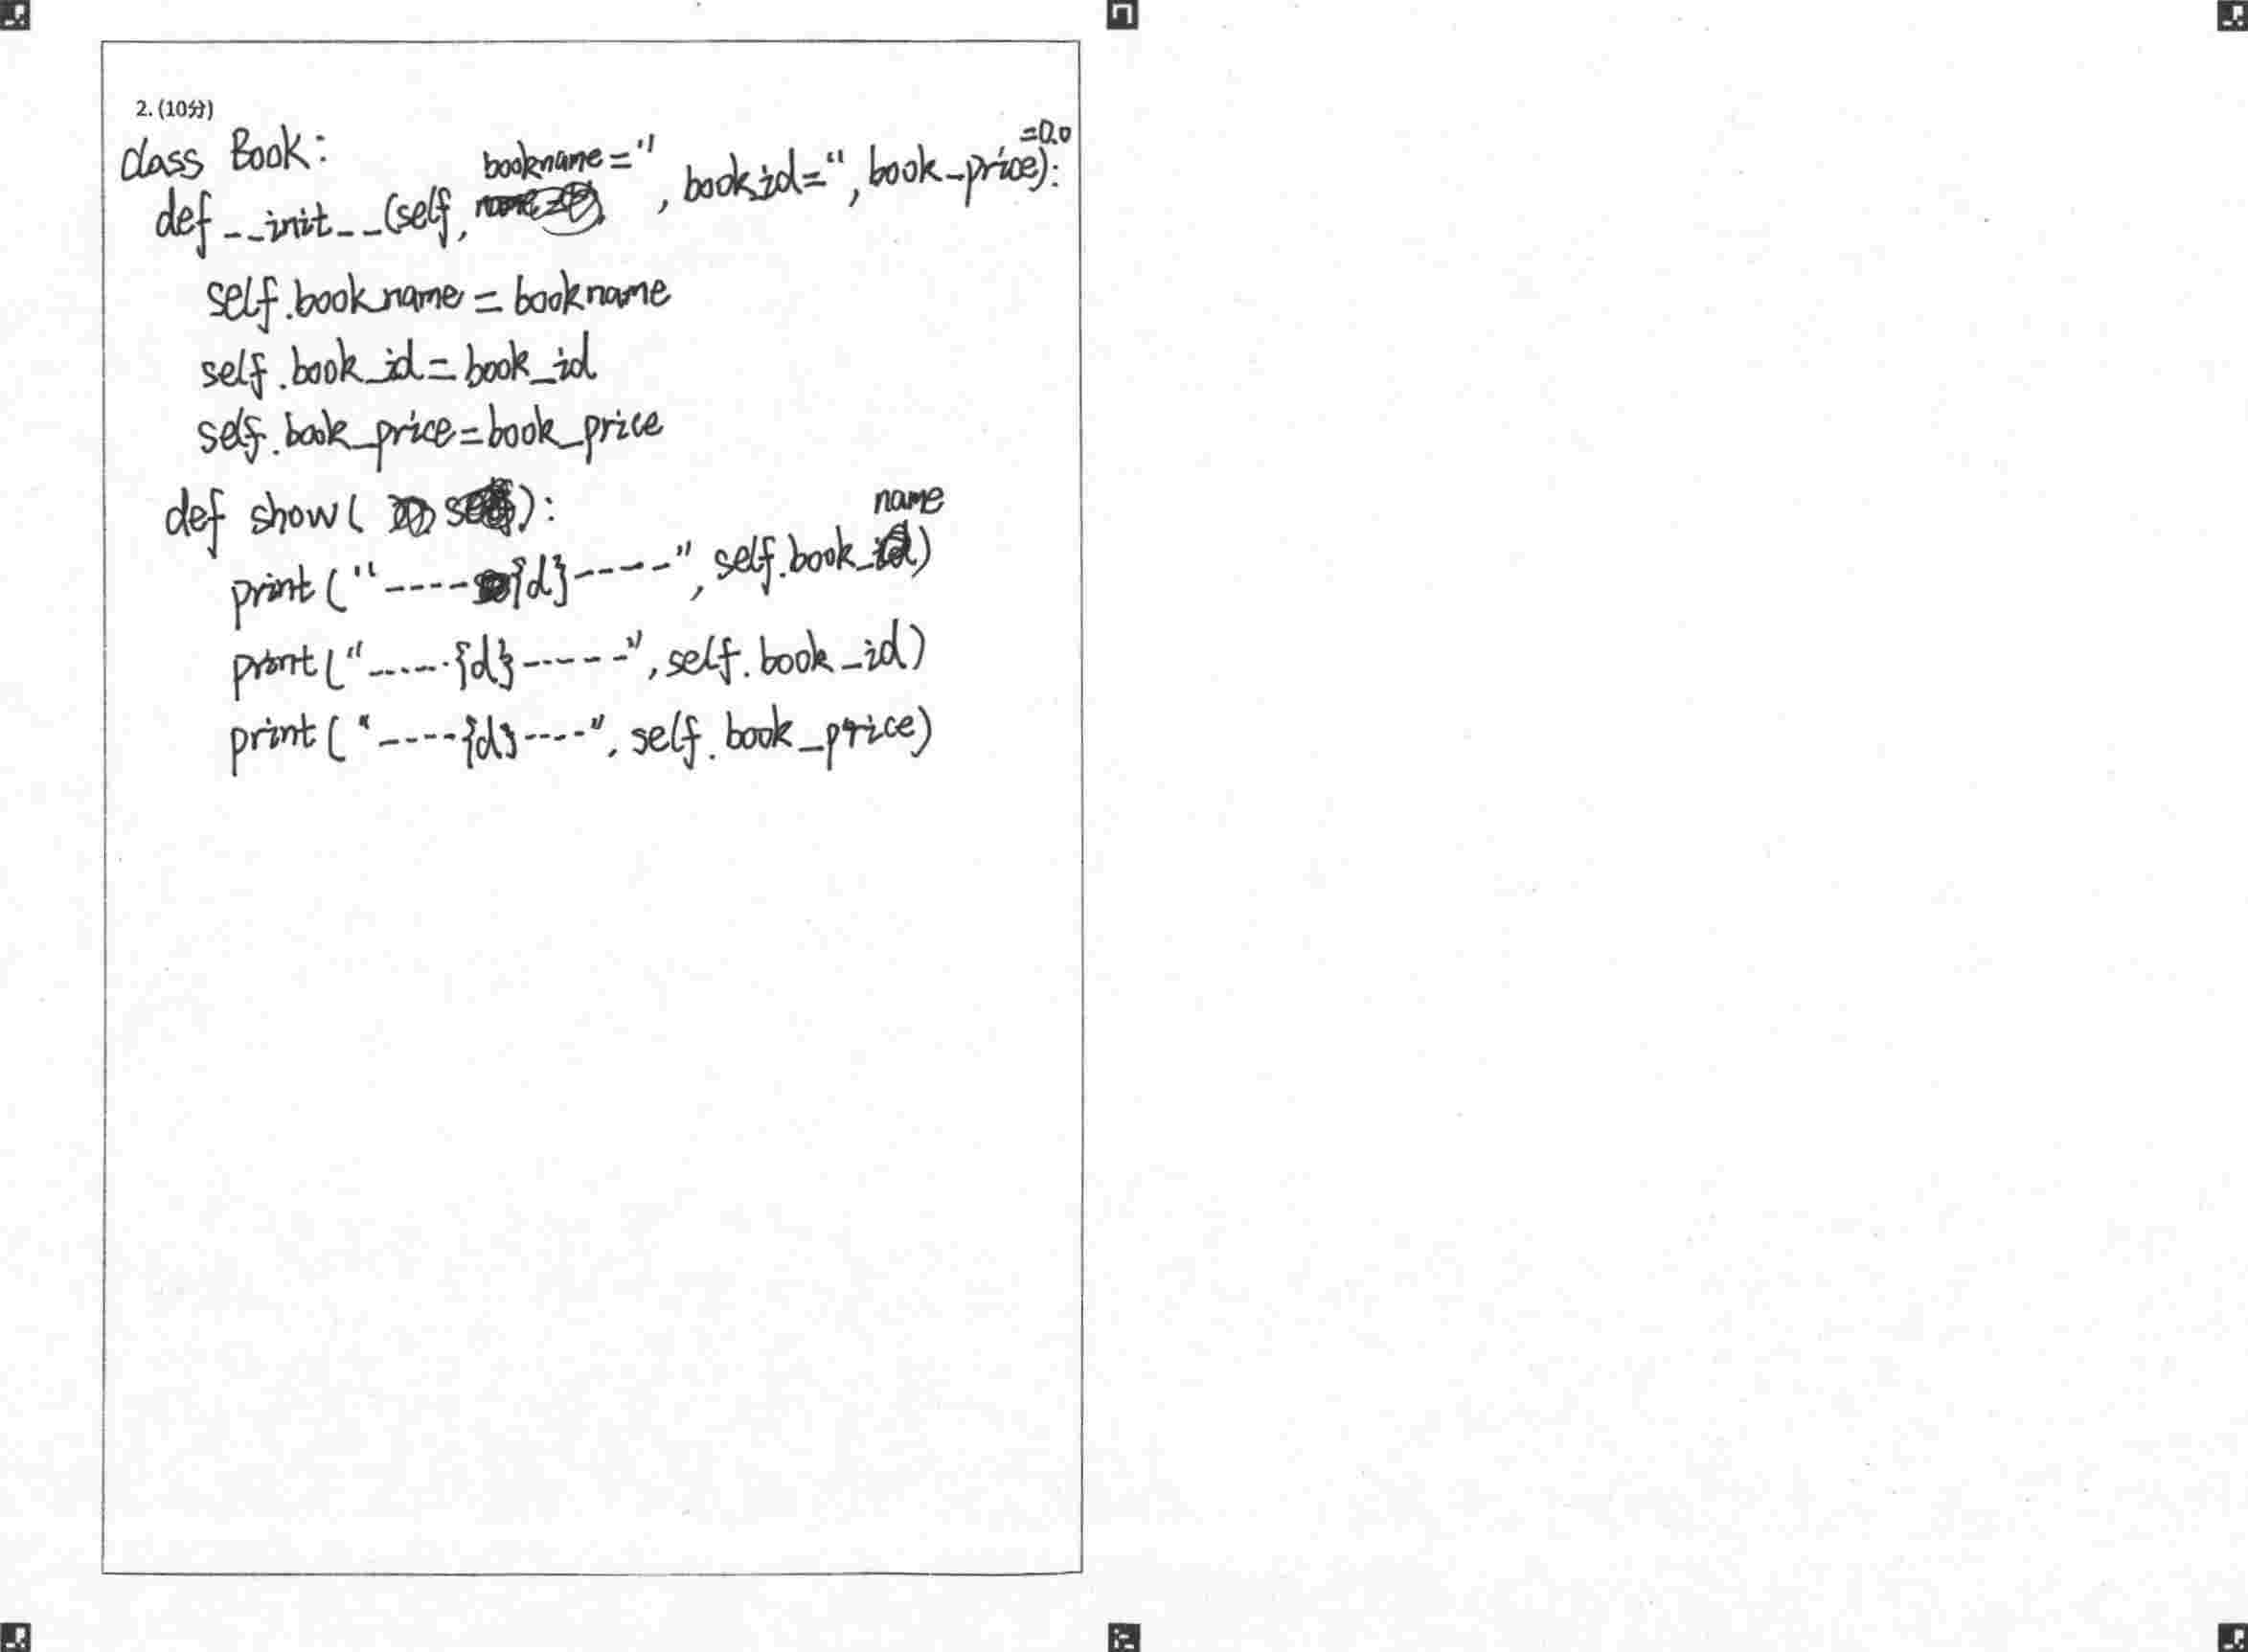 2. (10分)
class Book:
def __init__(self, bookname='', book_id='', book_price=0.0):
self.bookname = bookname
self.book_id = book_id
self.book_price = book_price
def show( self):
print("----{d}-----", self.book_name)
print("------{d}------", self.book_id)
print("----{d}----", self.book_price)